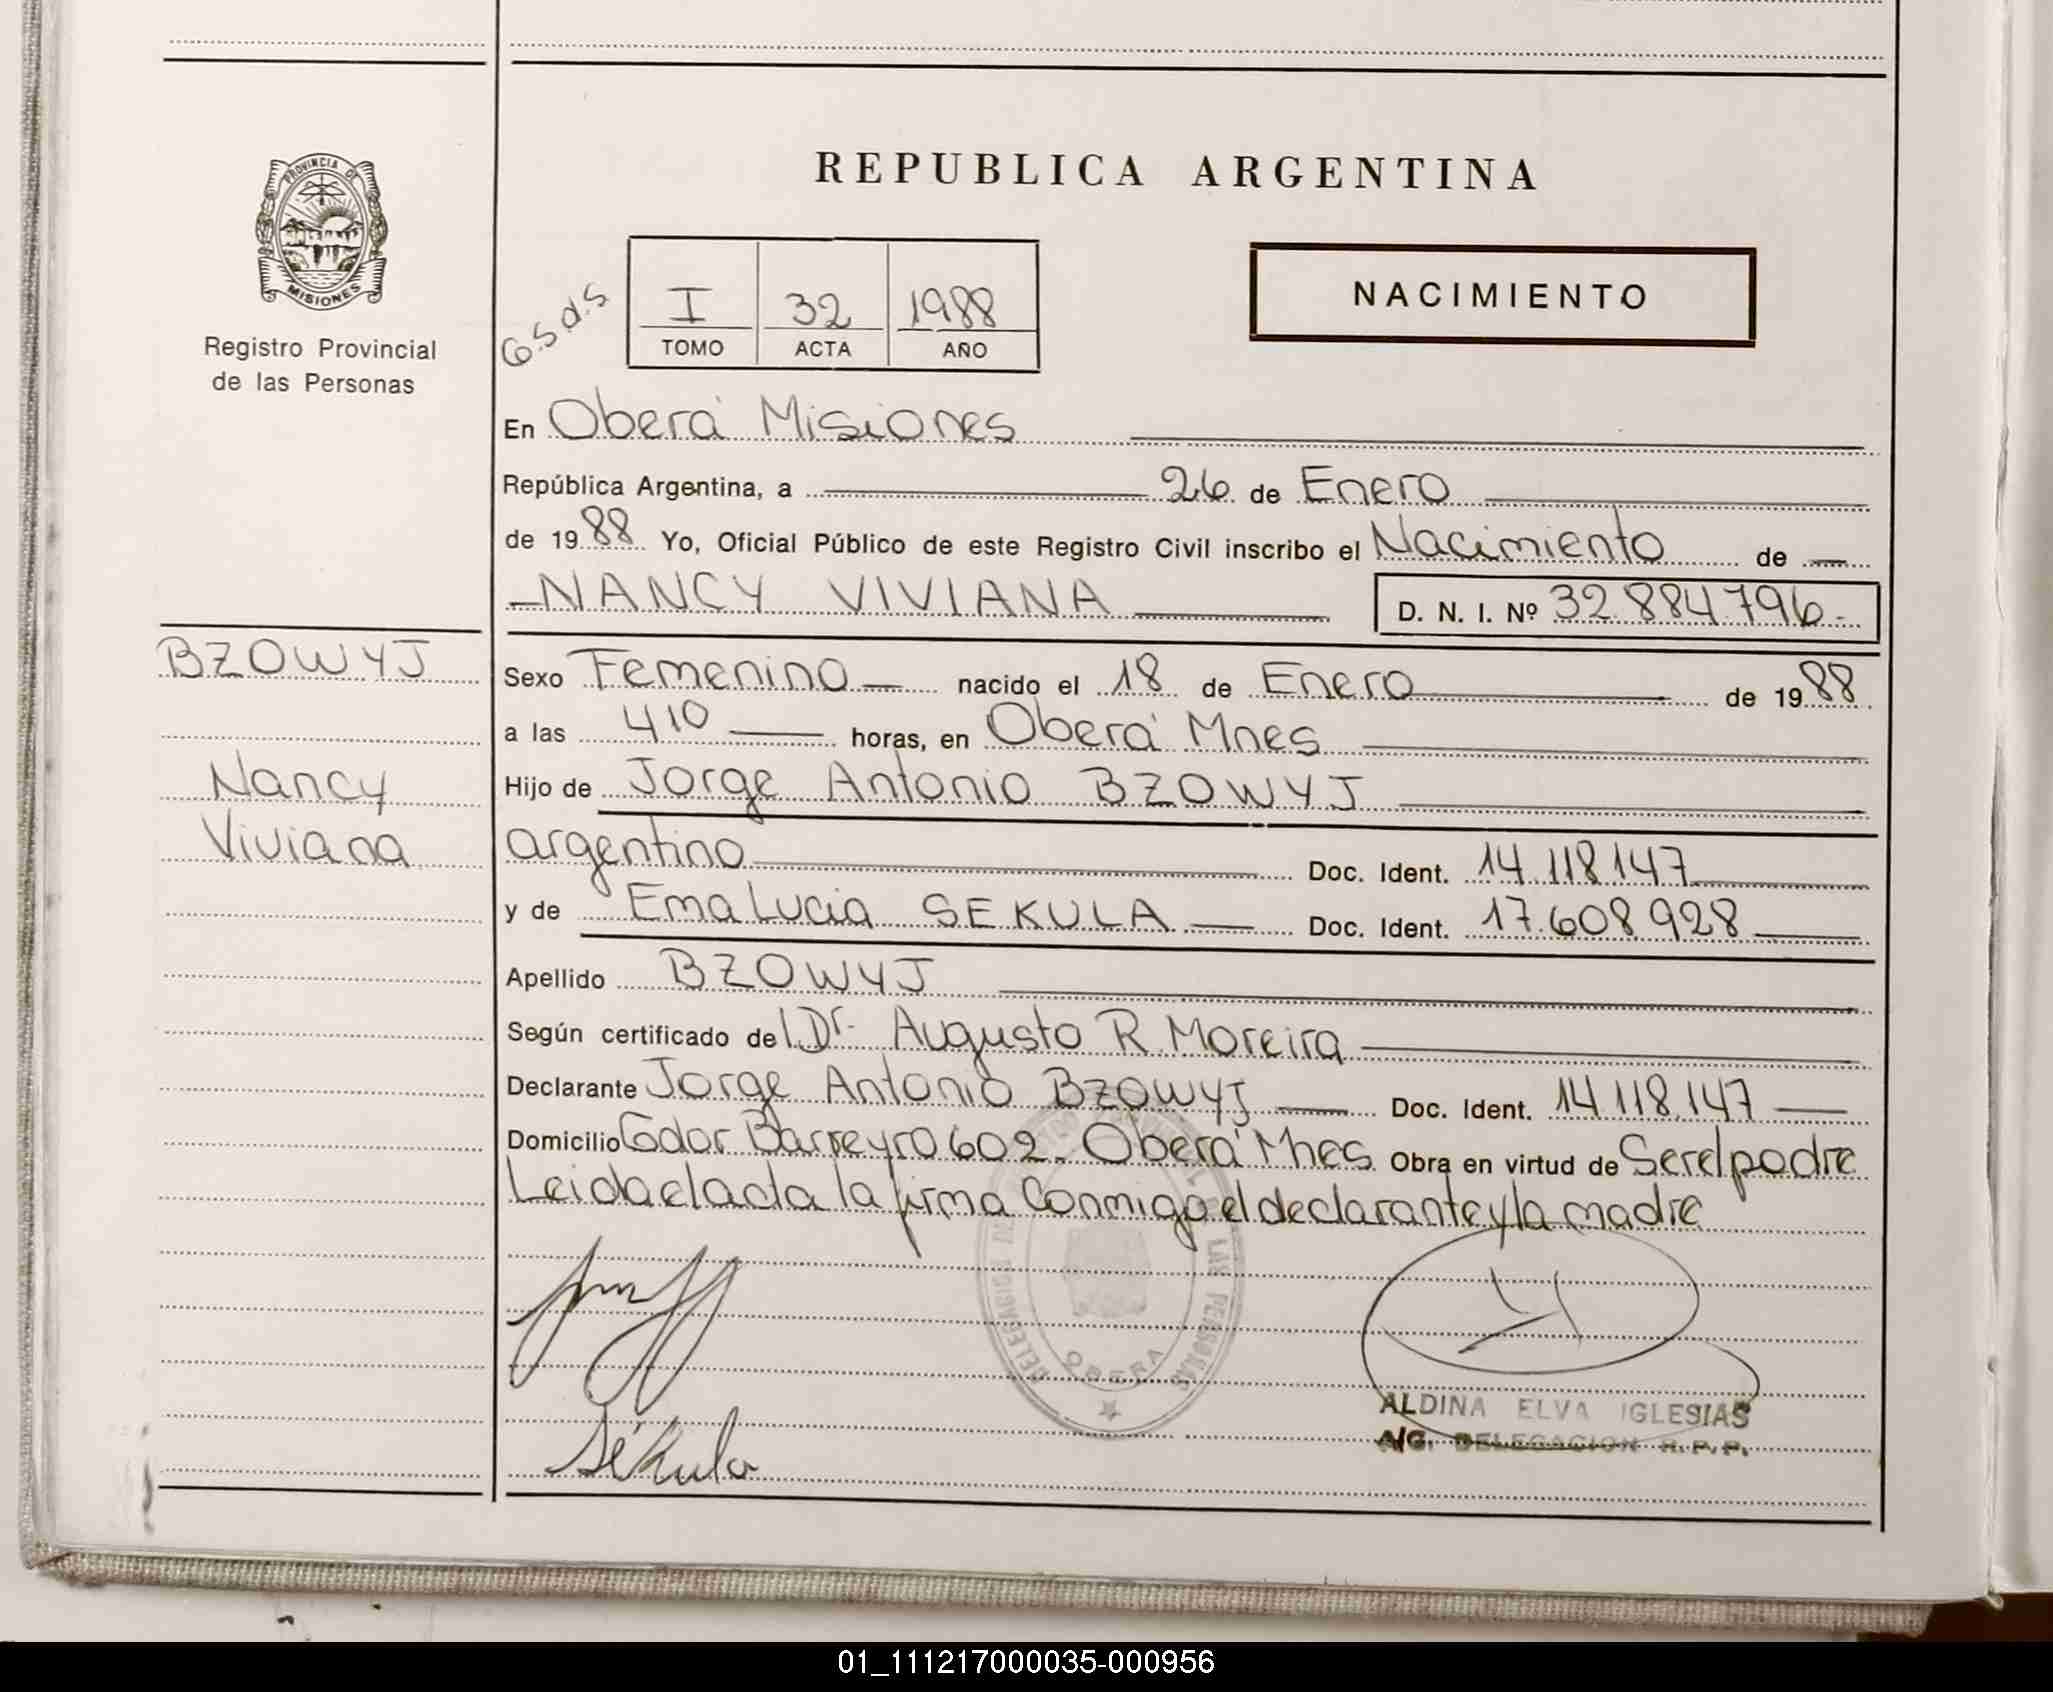 PROVINCIA DE
MISIONES
Registro Provincial
de las Personas
REPUBLICA ARGENTINA
G.S.d.S
I 32 1988
TOMO ACTA AÑO
NACIMIENTO
En Oberá Misiones
República Argentina, a 26 de Enero
de 1988 Yo, Oficial Público de este Registro Civil inscribo el Nacimiento de
NANCY VIVIANA D. N. I. Nº 32.884.796.-
BZOWYJ
Nancy
Viviana
Sexo Femenino nacido el 18 de Enero de 1988
a las 410 horas, en Oberá Mnes
Hijo de Jorge Antonio BZOWYJ
argentino Doc. Ident. 14.118.147
y de Ema Lucia SEKULA Doc. Ident. 17.608.928
Apellido BZOWYJ
Según certificado del Dr. Augusto R Moreira
Declarante Jorge Antonio BZOWYJ Doc. Ident. 14.118.147
Domicilio Gdor Barreyro 602. Oberá Mnes Obra en virtud de Ser el padre
Leida el acta la firma conmigo el declarante y la madre
OBERA
Sékula
ALDINA ELVA IGLESIAS
A/G. DELEGACION R.P.P.
01_111217000035-000956